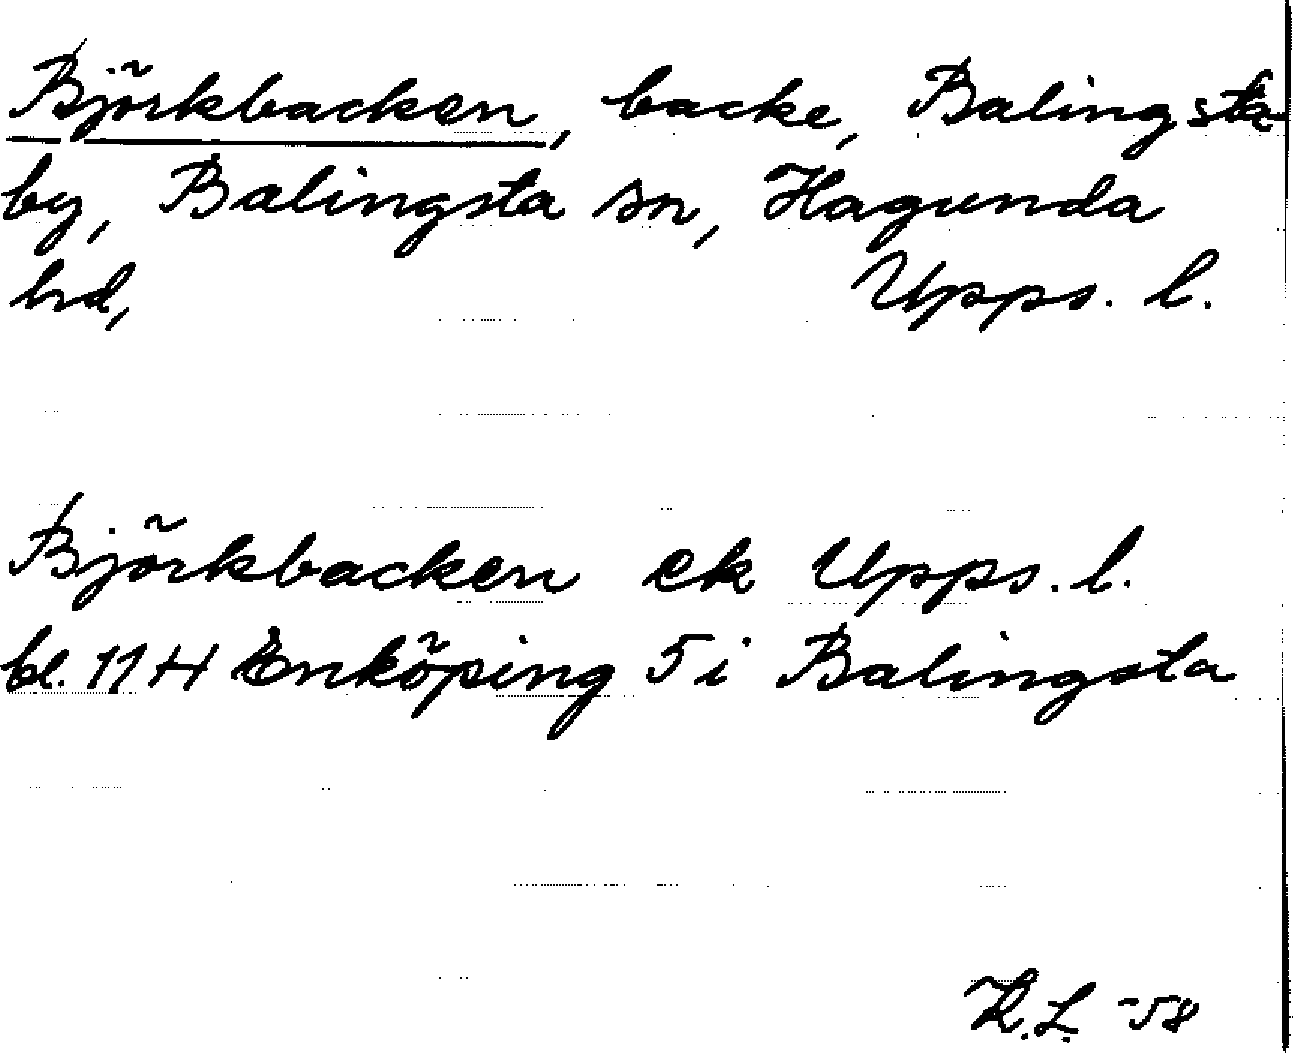 Björkbacken, backe, Balingsta
by, Balingsta sn, Hagunda
hd, Upps. l.
Björkbacken ek Upps. l.
bl. 11 H Enköping 5 i Balingsta
K.L. -58